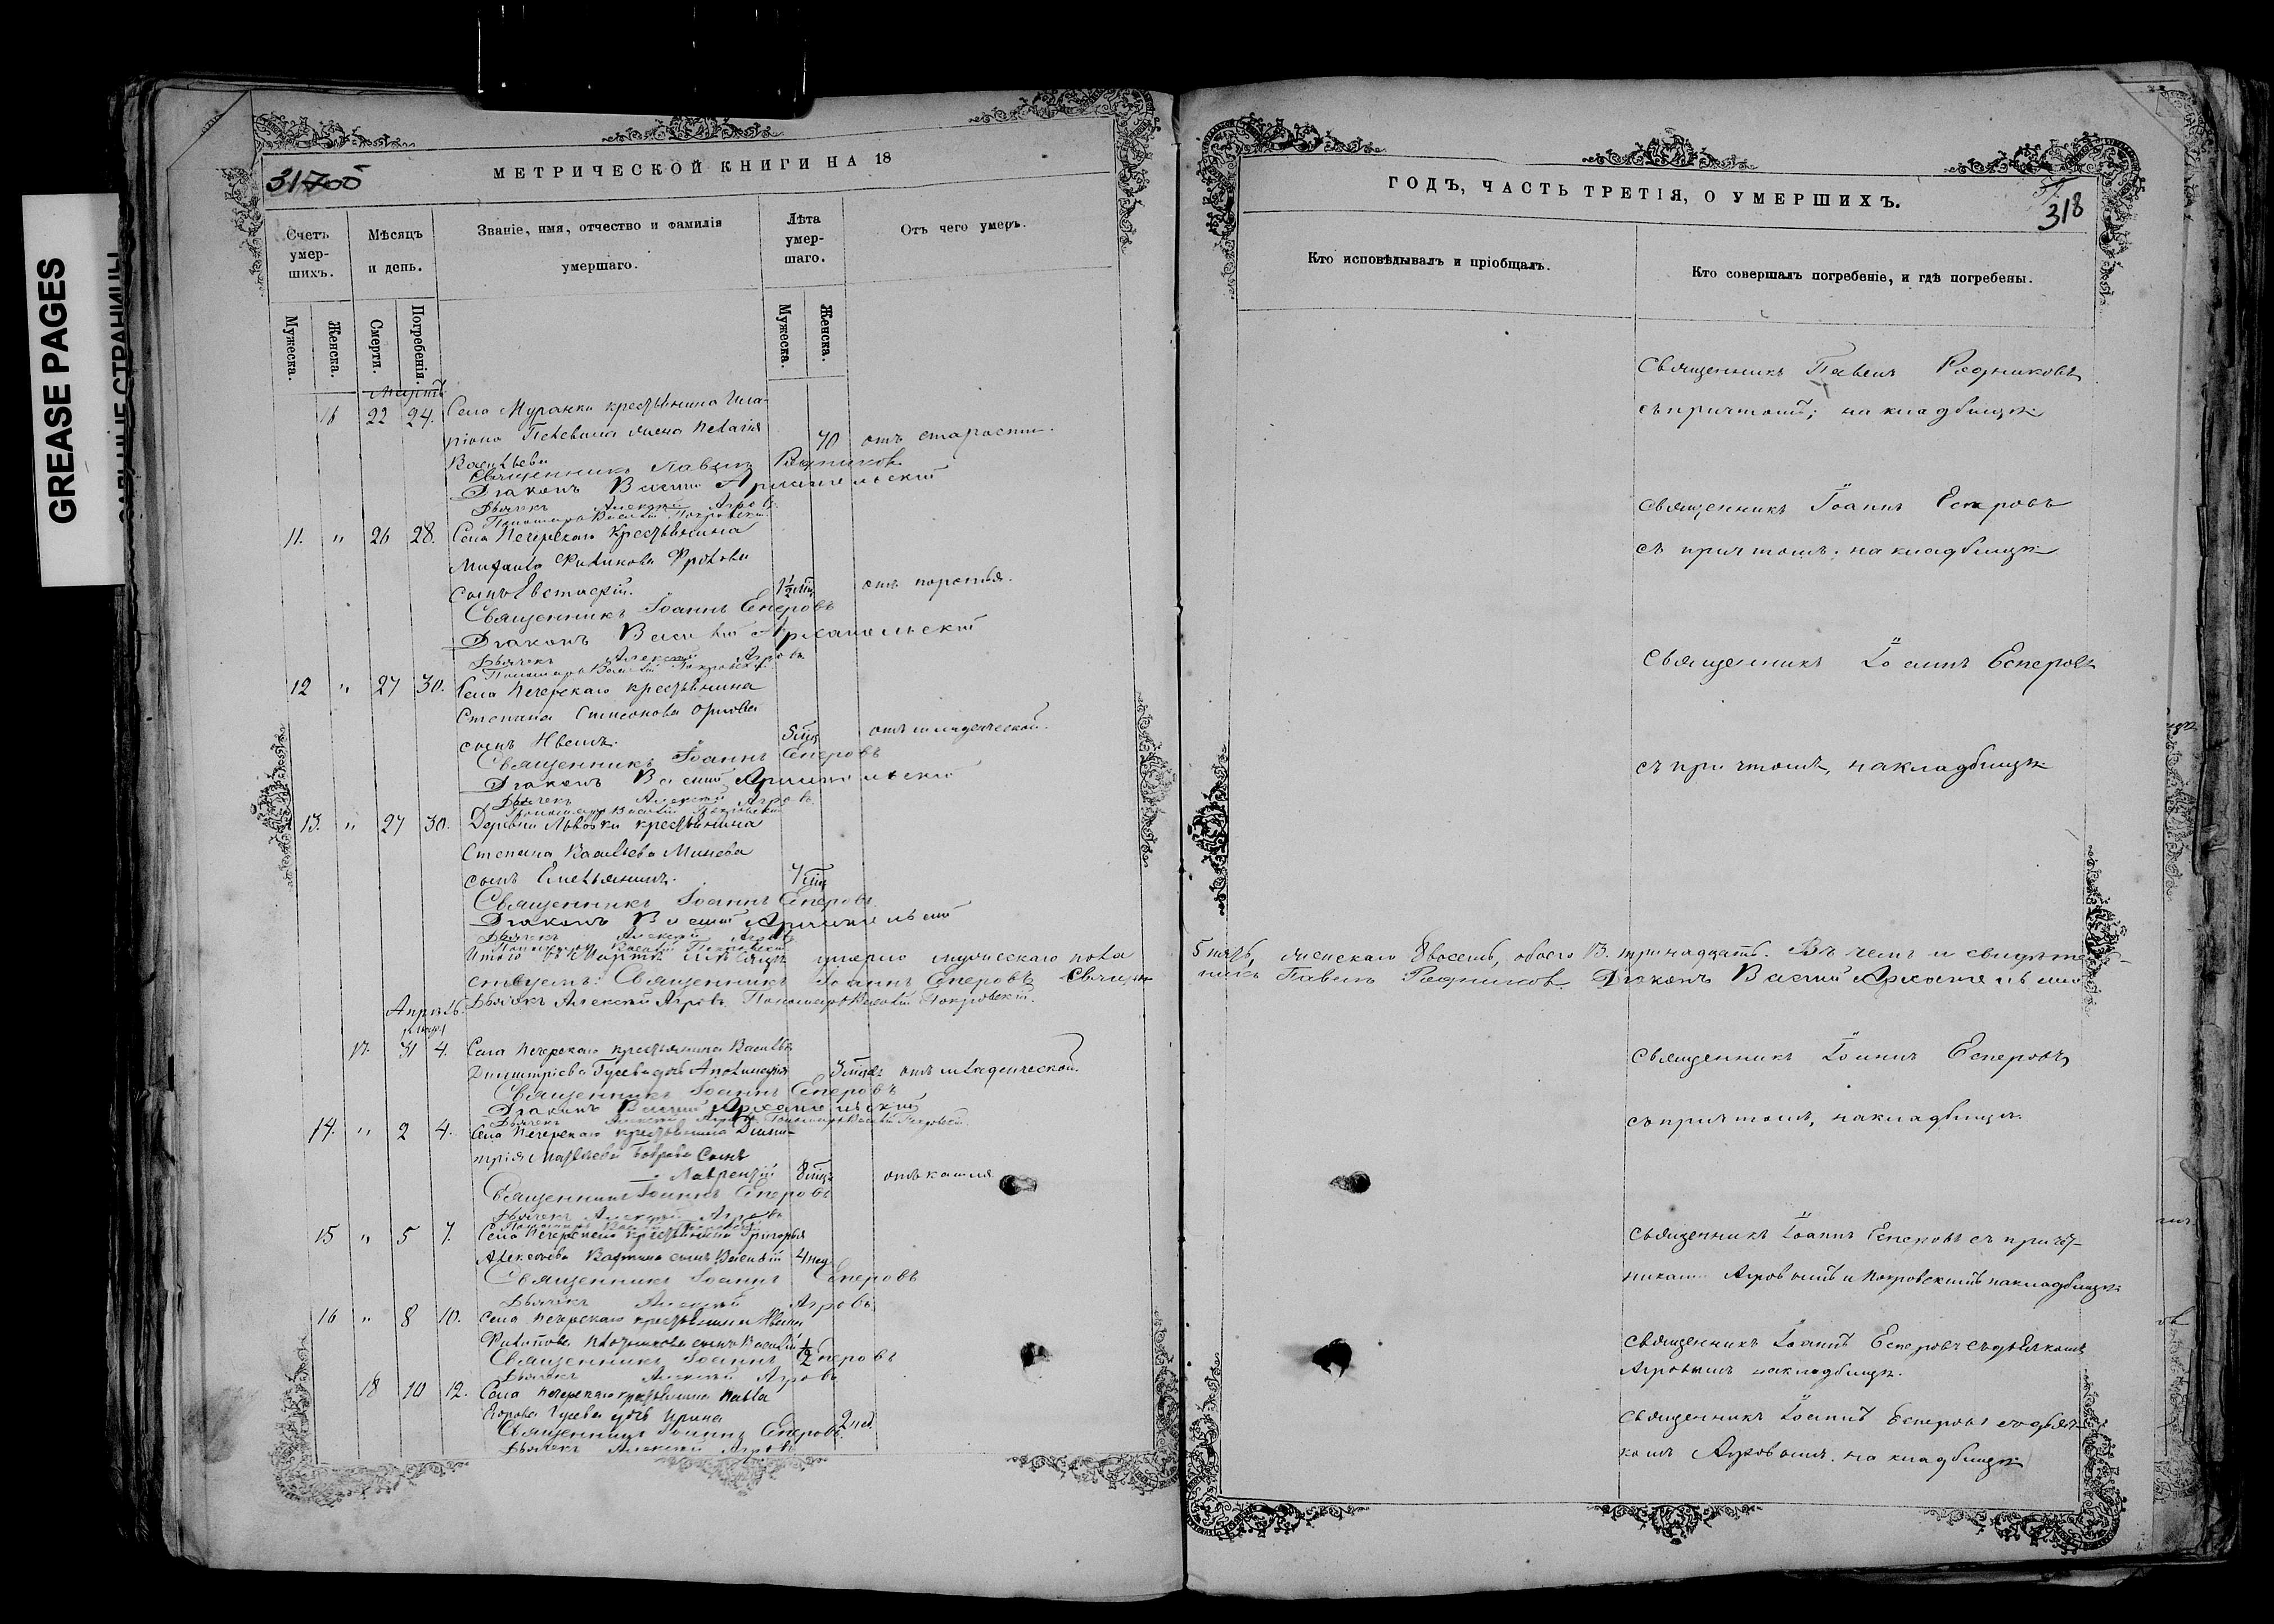 GREASE PAGES
МЕТРИЧЕСКОЙ КНИГИ НА 18
Счетъ умер-шихъ.
Мѣсяцъ и день.
Званіе, имя, отчество и фамилія умершаго.
Лѣта умер-шаго.
Отъ чего умеръ.
Мужеска.
Женска.
Смерти.
Погребенія.
Мужеска.
Женска.
Мартъ
16 22 24. Села Муранки крестьянина Ила-
ріона жена Пелагія 70 отъ старости.
Васильева
Священникъ Павелъ Родниковъ
Діаконъ Василій Архангельскій
Дьячекъ Алексѣй Агровъ
Пономарь Василій Покровскій
11. " 26 28. Села Печерскаго крестьянина
Михаила Филипова Фролова
сынъ Евстафій. 1½ отъ поротья.
Священникъ Іоаннъ Есперовъ
Діаконъ Василій Архангельскій
Дьячекъ Алексѣй Агровъ
Пономарь Василій Покровскій
12 " 27 30. Села Печерскаго крестьянина
Степана Симеонова Орлова
сынъ Иванъ. 5 отъ младенческой.
Священникъ Іоаннъ Есперовъ
Діаконъ Василій Архангельскій
Дьячекъ Алексѣй Агровъ
Пономарь Василій Покровскій
13. " 27 30. Деревни Львовки крестьянина
Степана Васильева Минева
сынъ Емельянъ. 7
Священникъ Іоаннъ Есперовъ
Діаконъ Василій Архангельскій
Дьячекъ Алексѣй Агровъ
Пономарь Василій Покровскій
Итого въ Мартѣ мѣсяцѣ умерло мужескаго пола
ствуемъ: Священникъ Іоаннъ Есперовъ Священ
Дьячекъ Алексѣй Агровъ. Пономарь Василій Покровскій.
Апрѣль
17. 31 4. Села Печерскаго крестьянина Василья
Димитріева Гусева дочь Аполинарія 3 отъ младенческой.
Священникъ Іоаннъ Есперовъ
Діаконъ Василій Архангельскій
Дьячекъ Алексѣй Агровъ. Пономарь Василій Покровскій.
14. " 2 4. Села Печерскаго крестьянина Дими-
трія Боброва Сынъ
Лаврентій 8 отъ кашля
Священникъ Іоаннъ Есперовъ
Дьячекъ Алексѣй Агровъ
Пономарь Василій Покровскій
15 " 5 7. Села Печерскаго крестьянина Григорья
Алексѣева сынъ Василій 4 нед.
Священникъ Іоаннъ Есперовъ
Дьячекъ Алексѣй Агровъ
16 " 8 10. Села Печерскаго крестьянина Ивана
Филипова сынъ Василій ½
Священникъ Іоаннъ Есперовъ
Дьячекъ Алексѣй Агровъ
18 10 12. Села Печерскаго крестьянина Павла
Егорова Гусева дочь Ирина 2 нед.
Священникъ Іоаннъ Есперовъ
Дьячекъ Алексѣй Агровъ
ГОДЪ, ЧАСТЬ ТРЕТІЯ, О УМЕРШИХЪ.
318
Кто исповѣдывалъ и пріобщалъ.
Кто совершалъ погребеніе, и гдѣ погребены.
Священникъ Павелъ Родниковъ
съ причтомъ; на кладбищѣ
Священникъ Іоаннъ Есперовъ
съ причтомъ. на кладбищѣ
Священникъ Іоаннъ Есперовъ
съ причтомъ, на кладбищѣ
5 пять, женскаго 8 восемь, обоего 13. тринадцать. Въ чемъ и свидѣтель-
никъ Павелъ Родниковъ. Діаконъ Василій Архангельскій
Священникъ Іоаннъ Есперовъ
съ причтомъ, на кладбищѣ.
Священникъ Іоаннъ Есперовъ съ причет-
никами Агровымъ и Покровскимъ на кладбищѣ
Священникъ Іоаннъ Есперовъ съ дьячкомъ
Агровымъ на кладбищѣ.
Священникъ Іоаннъ Есперовъ съ дьяч-
комъ Агровымъ. на кладбищѣ